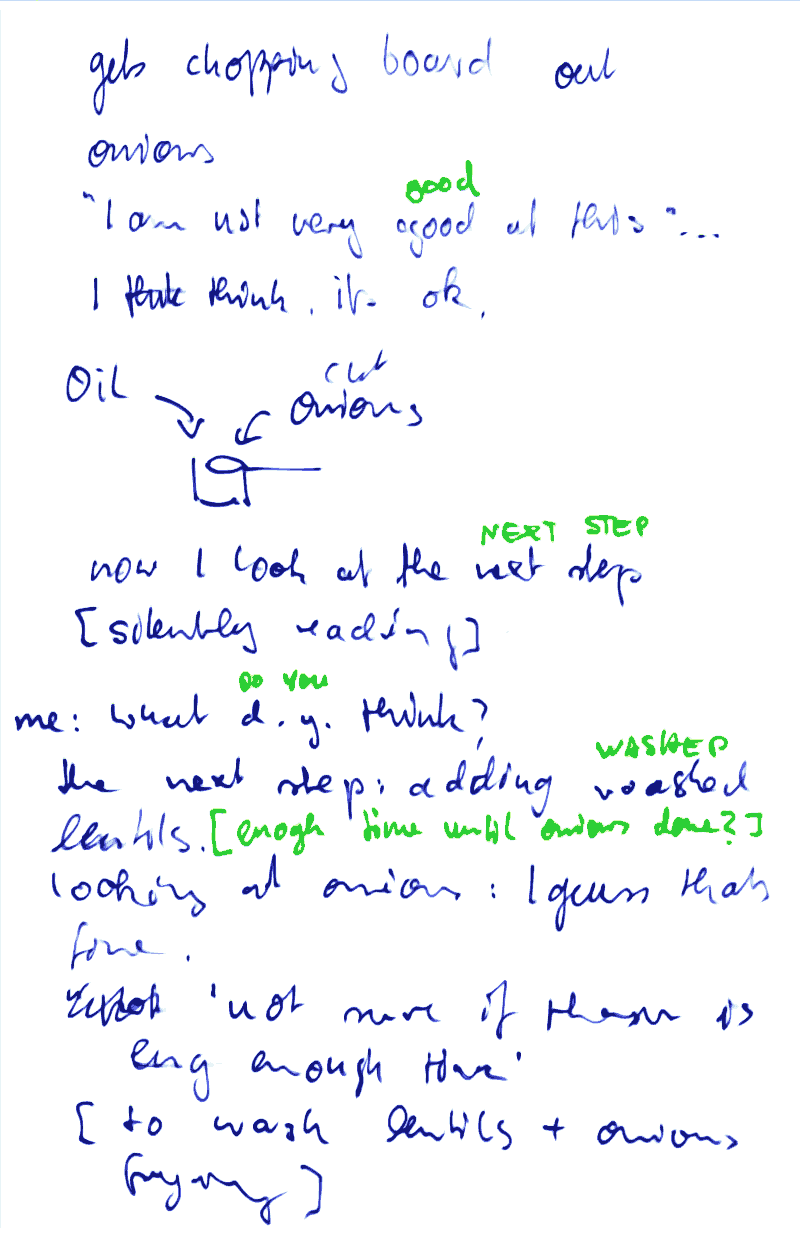 gets chopping board out
onions
good
"I am not very good at this"...
I think, it's ok.
cut
Oil onions
NEXT STEP
now I look at the next step
[silently reading]
DO YOU
me: what d.y. think?
WASHED
the next step: adding washed
lentils. [enogh time until onions done?]
looking at onion: I guess thats
fine.
'not sure if there is
eng enough time'
[to wash lentils + onions
frying]